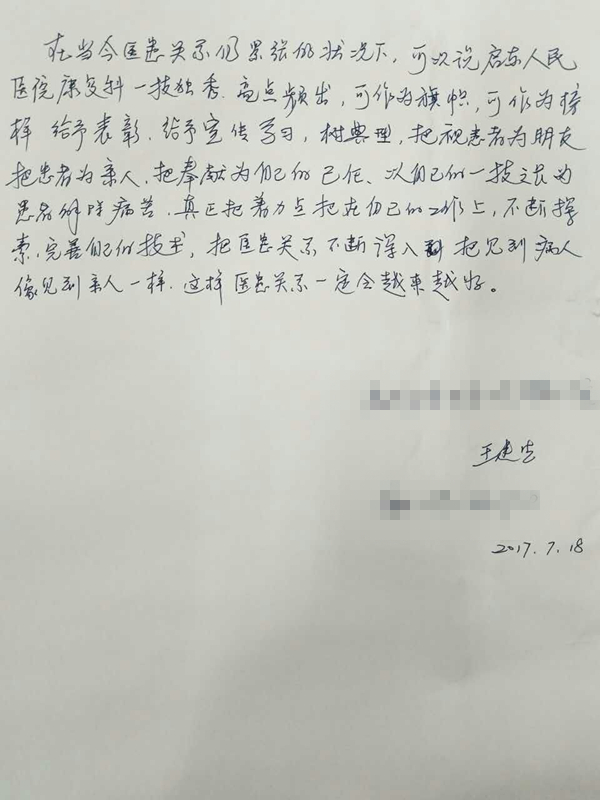 在当今医患关系仍紧张的状况下，可以说启东人民
医院康复科一技独秀.亮点频出，可作为旗帜，可作为榜
样 给予表彰.给予宣传学习，树典型，把视患者为朋友
把患者为亲人.把奉献为自己的己任、以自己的一技之长为
患者解除病苦.真正把着力点把在自己的工作上，不断探
索.完善自己的技术，把医患关系不断深入 把见到病人
像见到亲人一样.这样医患关系一定会越来越好。
王建生
2017.7.18